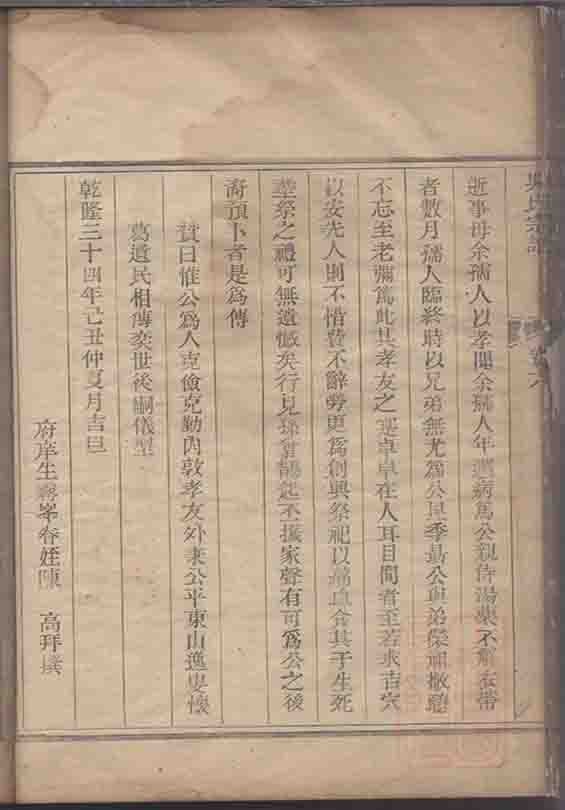 吳氏宗譜
卷六
逝事母余孺人以孝聞余孺人年邁病篤公親侍湯藥不解衣帶
者數月孺人臨終時以兄弟無尤為公與季最公與弟榮
不忘至老彌篤此其孝友之卓卓在人耳目間者至若求吉穴
以安先人則不惜費不辭勞更為創興祭祀以 其于生死
塟祭之禮可無遺憾矣行見孫曾鵲起丕振家聲有可為公之後
裔預卜者是為傳
賛曰惟公為人克儉克勤內敦孝友外秉公平東山逸叟懷
葛遺民相傳奕世後嗣儀型
乾隆三十四年己丑仲夏月吉旦
府庠生 眷姪陳 高拜撰